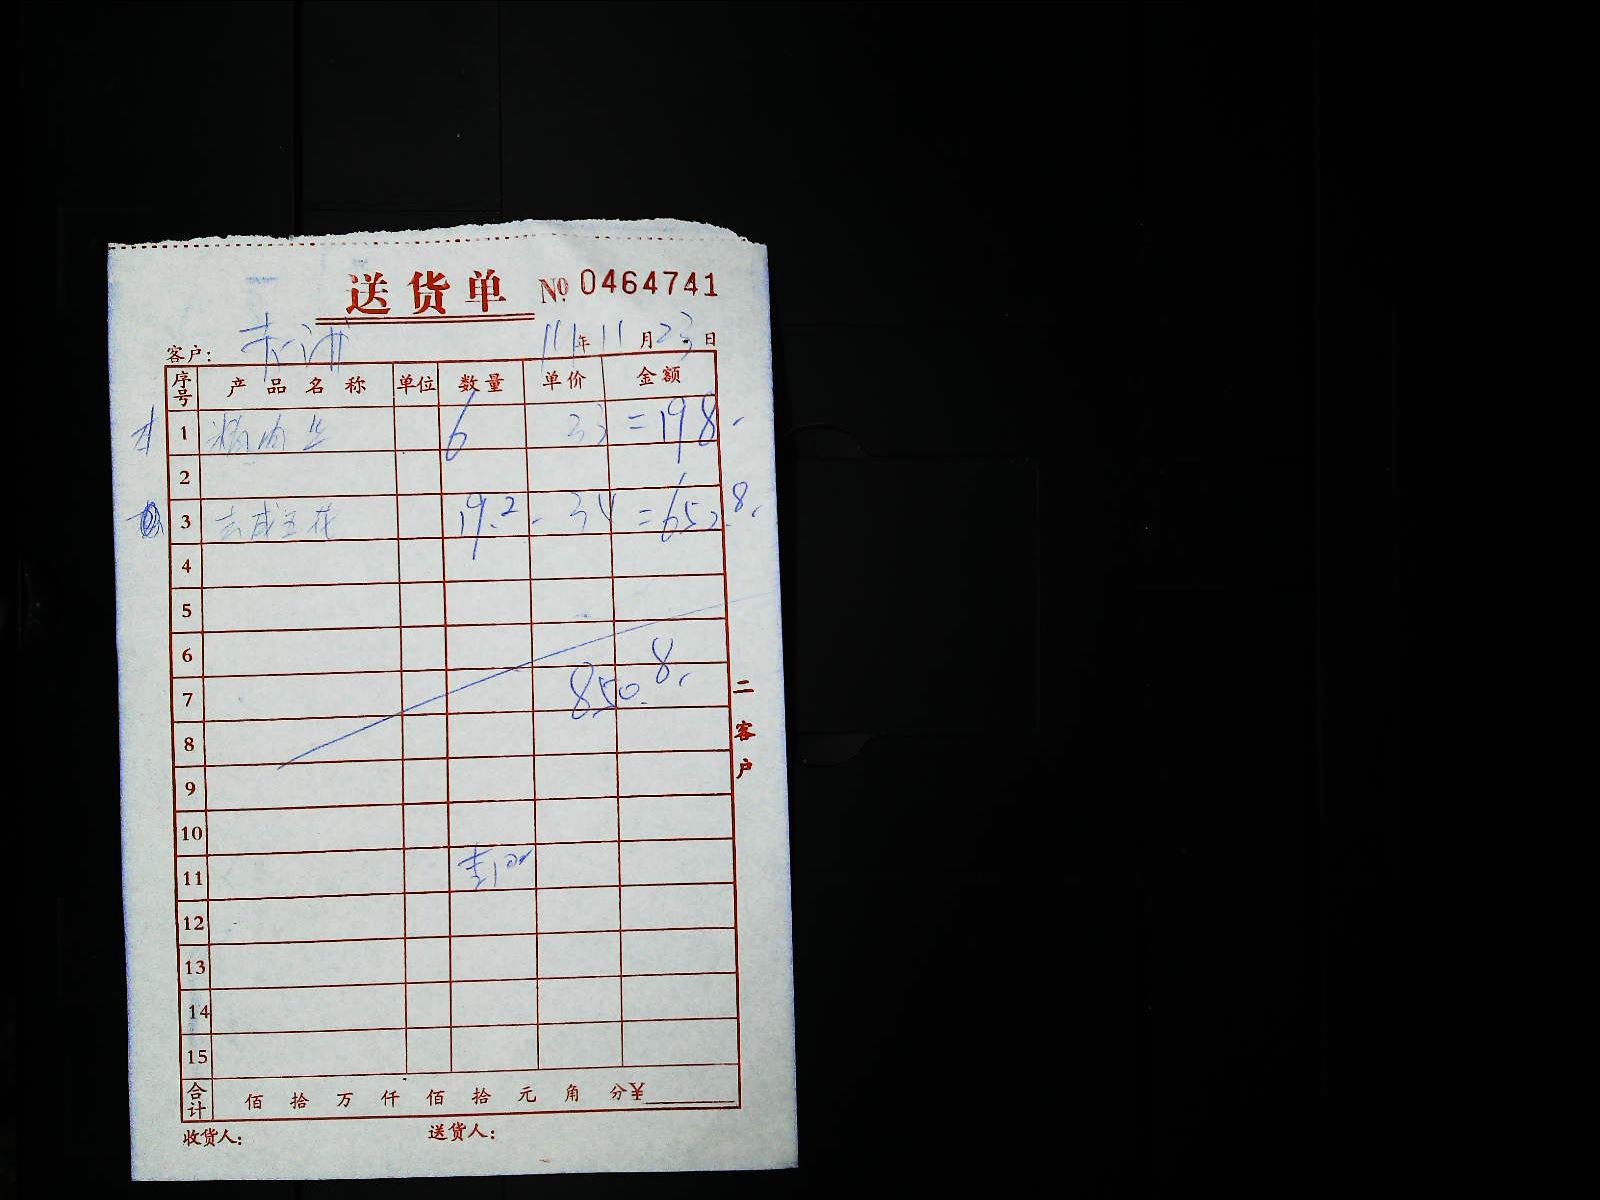 送货单 № 0464741
客户： 111年11月23日
序号 产品名称 单位 数量 单价 金额
1 6 33 =198.
2
3 19.2 - 34 =652.8.
4
5
6
7 850.8.
8
9
10
11
12
13
14
15
合计 佰 拾 万 仟 佰 拾 元 角 分¥
收货人： 送货人：
二客户